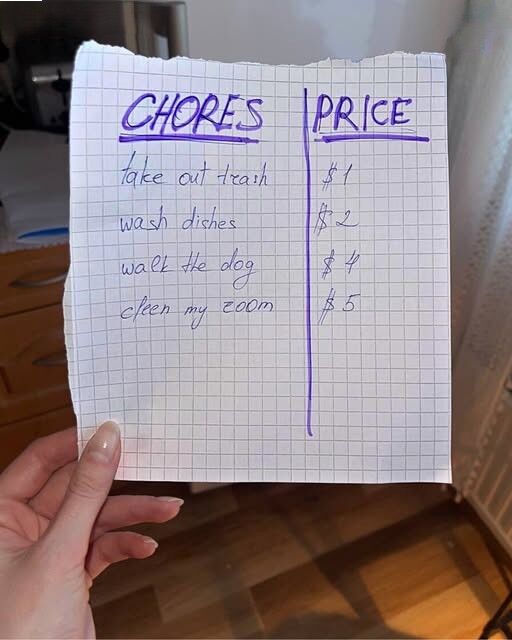 CHORES | PRICE
take out trash $1
wash dishes $2
walk the dog $4
cleen my room $5